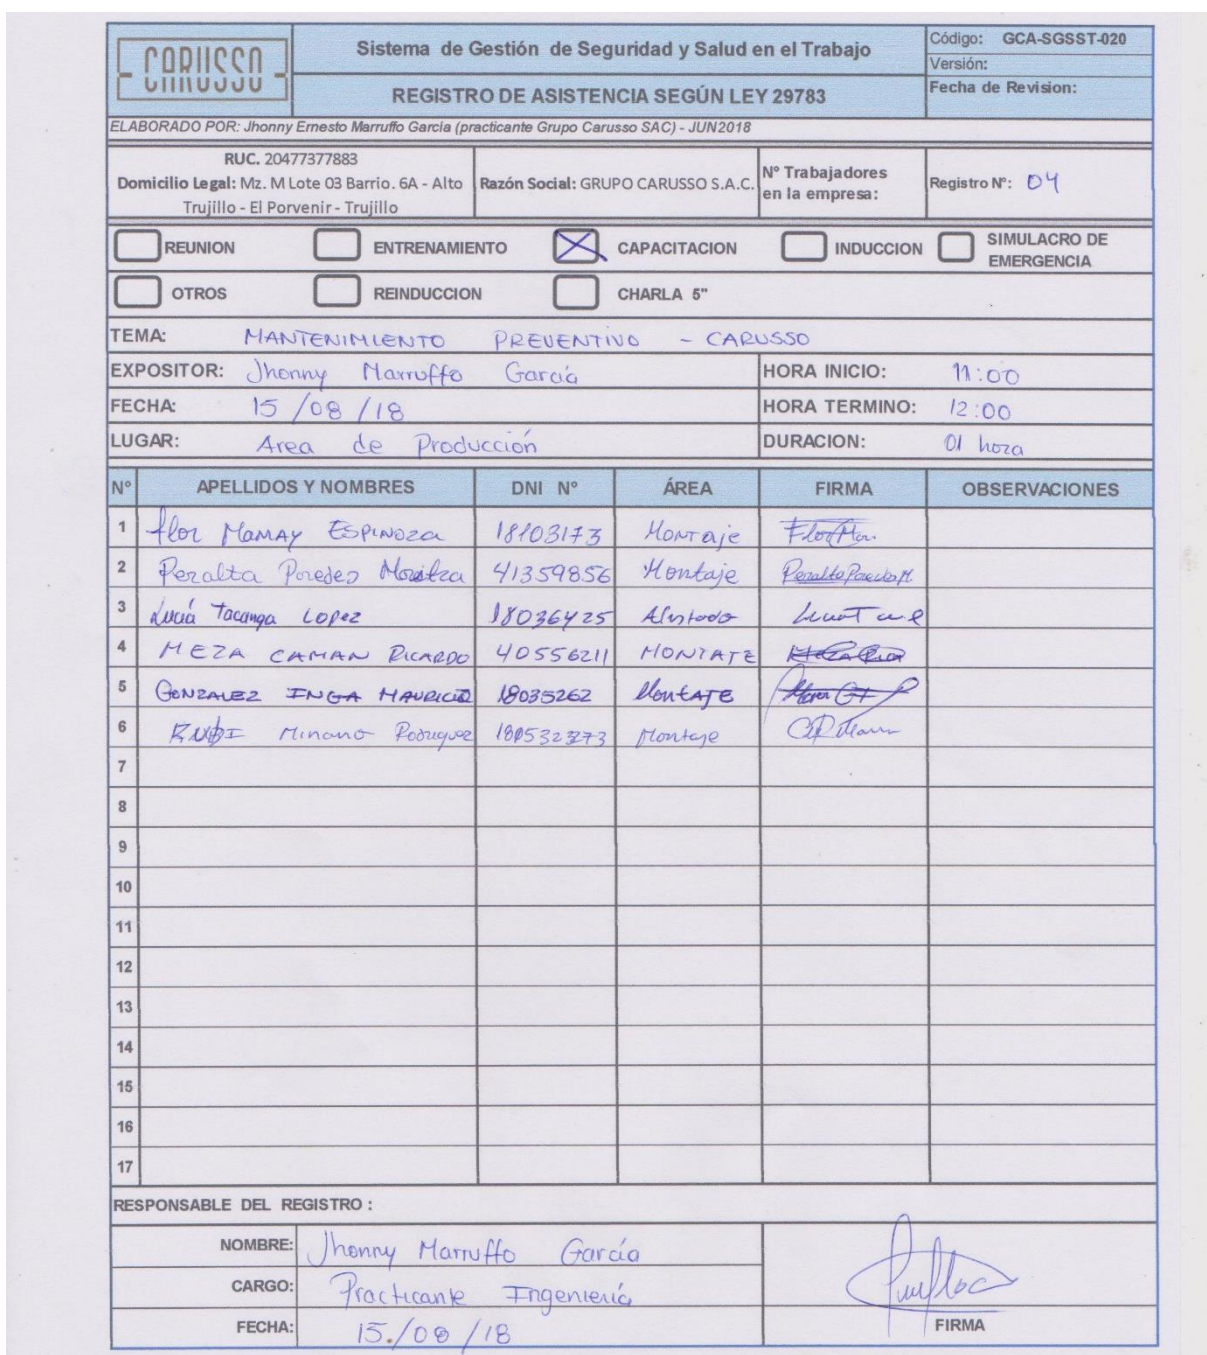 CARUSSO
Sistema de Gestión de Seguridad y Salud en el Trabajo
Código: GCA-SGSST-020
Versión:
REGISTRO DE ASISTENCIA SEGÚN LEY 29783
Fecha de Revision:
ELABORADO POR: Jhonny Ernesto Marruffo García (practicante Grupo Carusso SAC) - JUN2018
RUC. 20477377883
Domicilio Legal: Mz. M Lote 03 Barrio. 6A - Alto
Trujillo - El Porvenir - Trujillo
Razón Social: GRUPO CARUSSO S.A.C.
Nº Trabajadores
en la empresa:
Registro Nº: 04
REUNION ENTRENAMIENTO CAPACITACION INDUCCION SIMULACRO DE
EMERGENCIA
OTROS REINDUCCION CHARLA 5"
TEMA: MANTENIMIENTO PREVENTIVO - CARUSSO
EXPOSITOR: Jhonny Marruffo García HORA INICIO: 11:00
FECHA: 15/08/18 HORA TERMINO: 12:00
LUGAR: Area de Producción DURACION: 01 hora
Nº APELLIDOS Y NOMBRES DNI Nº ÁREA FIRMA OBSERVACIONES
1 flor Mamay ESPINOZA 18103173 Montaje
2 Peralta Paredes 41359856 Montaje Peralta Paredes M.
3 Lucía Tacanga LOPEZ 18036425 Alistado
4 MEZA CAMAN RICARDO 40556211 MONTATE
5 GONZALEZ INGA MAURICIO 18035262 MontATE
6 RUBI Minano Rodriguez Montaje
7
8
9
10
11
12
13
14
15
16
17
RESPONSABLE DEL REGISTRO :
NOMBRE: Jhonny Marruffo García
CARGO: Practicante Ingeniería
FECHA: 15/08/18
FIRMA